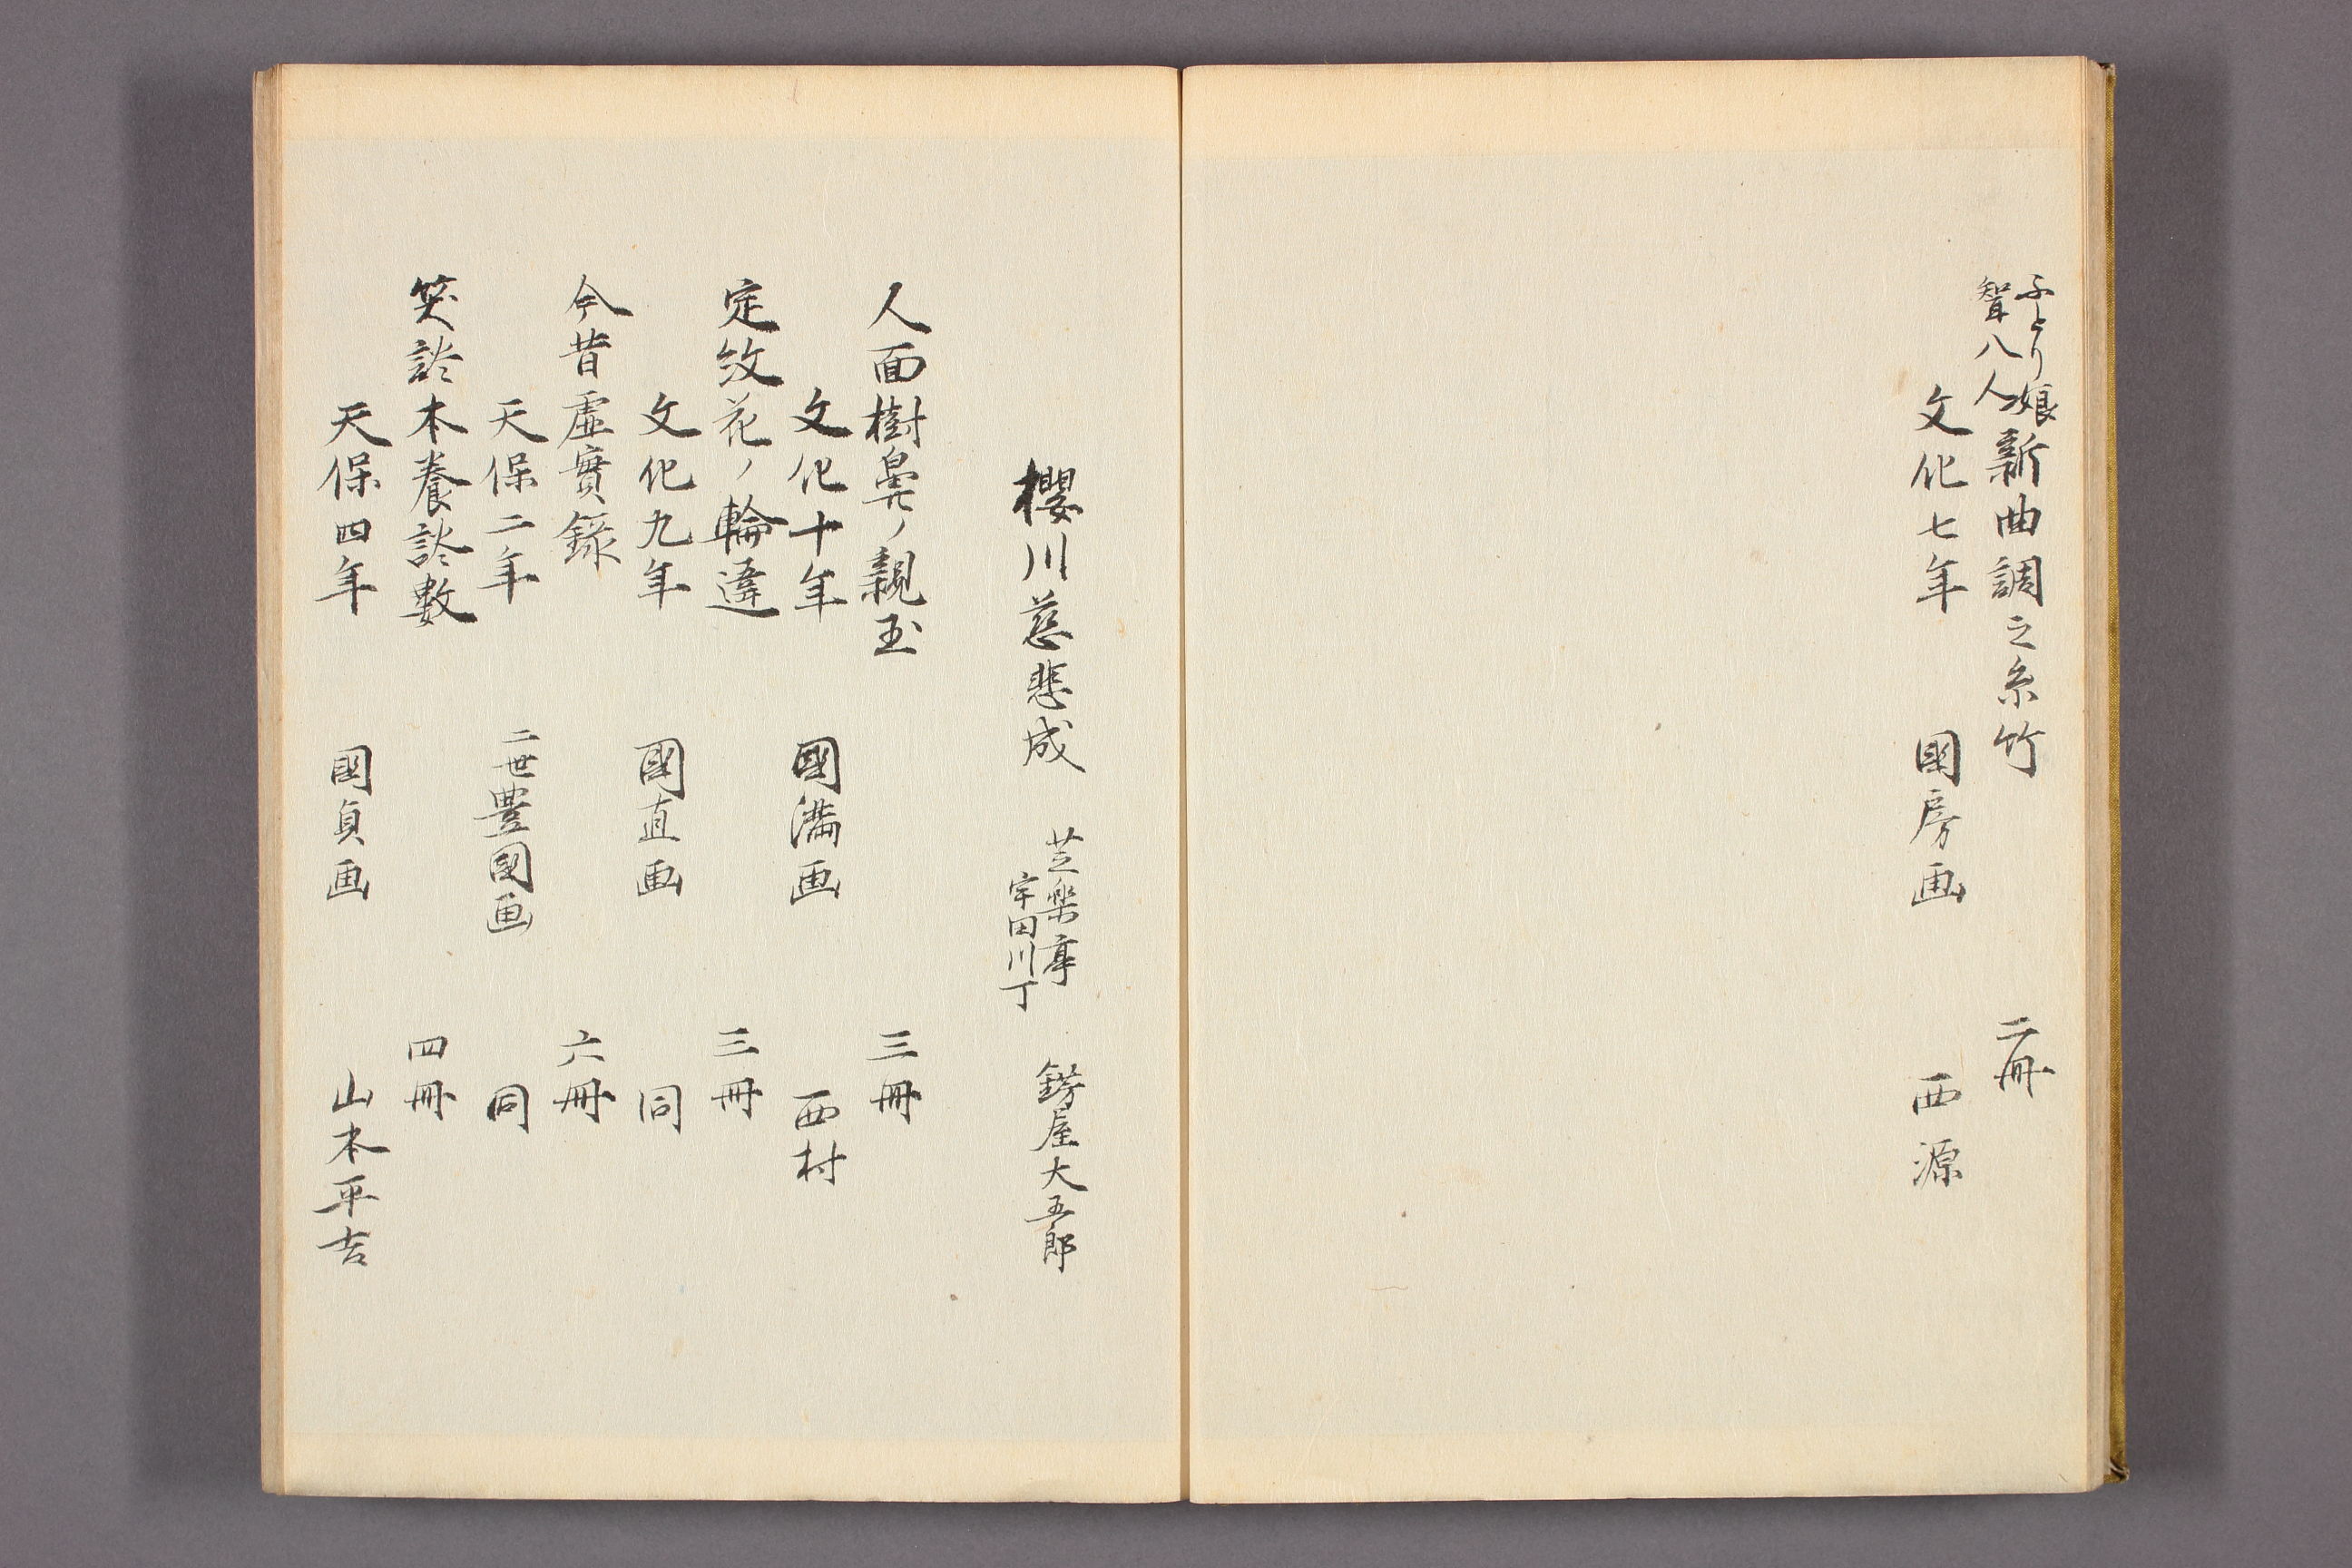 ふとり娘
聟八人
新曲調之糸竹 二冊
文化七年 國房画 西源
櫻川慈悲成 芝樂亭 宇田川丁 鐒屋大五郎
人面樹鼻ノ親玉 三冊
文化十年 國滿画 西村
定紋花ノ輪違 三冊
文化九年 國直画 同
今昔虚實録 六冊
天保二年 二世豊國画 同
笑談本養談數 四冊
天保四年 國貞画 山本平吉